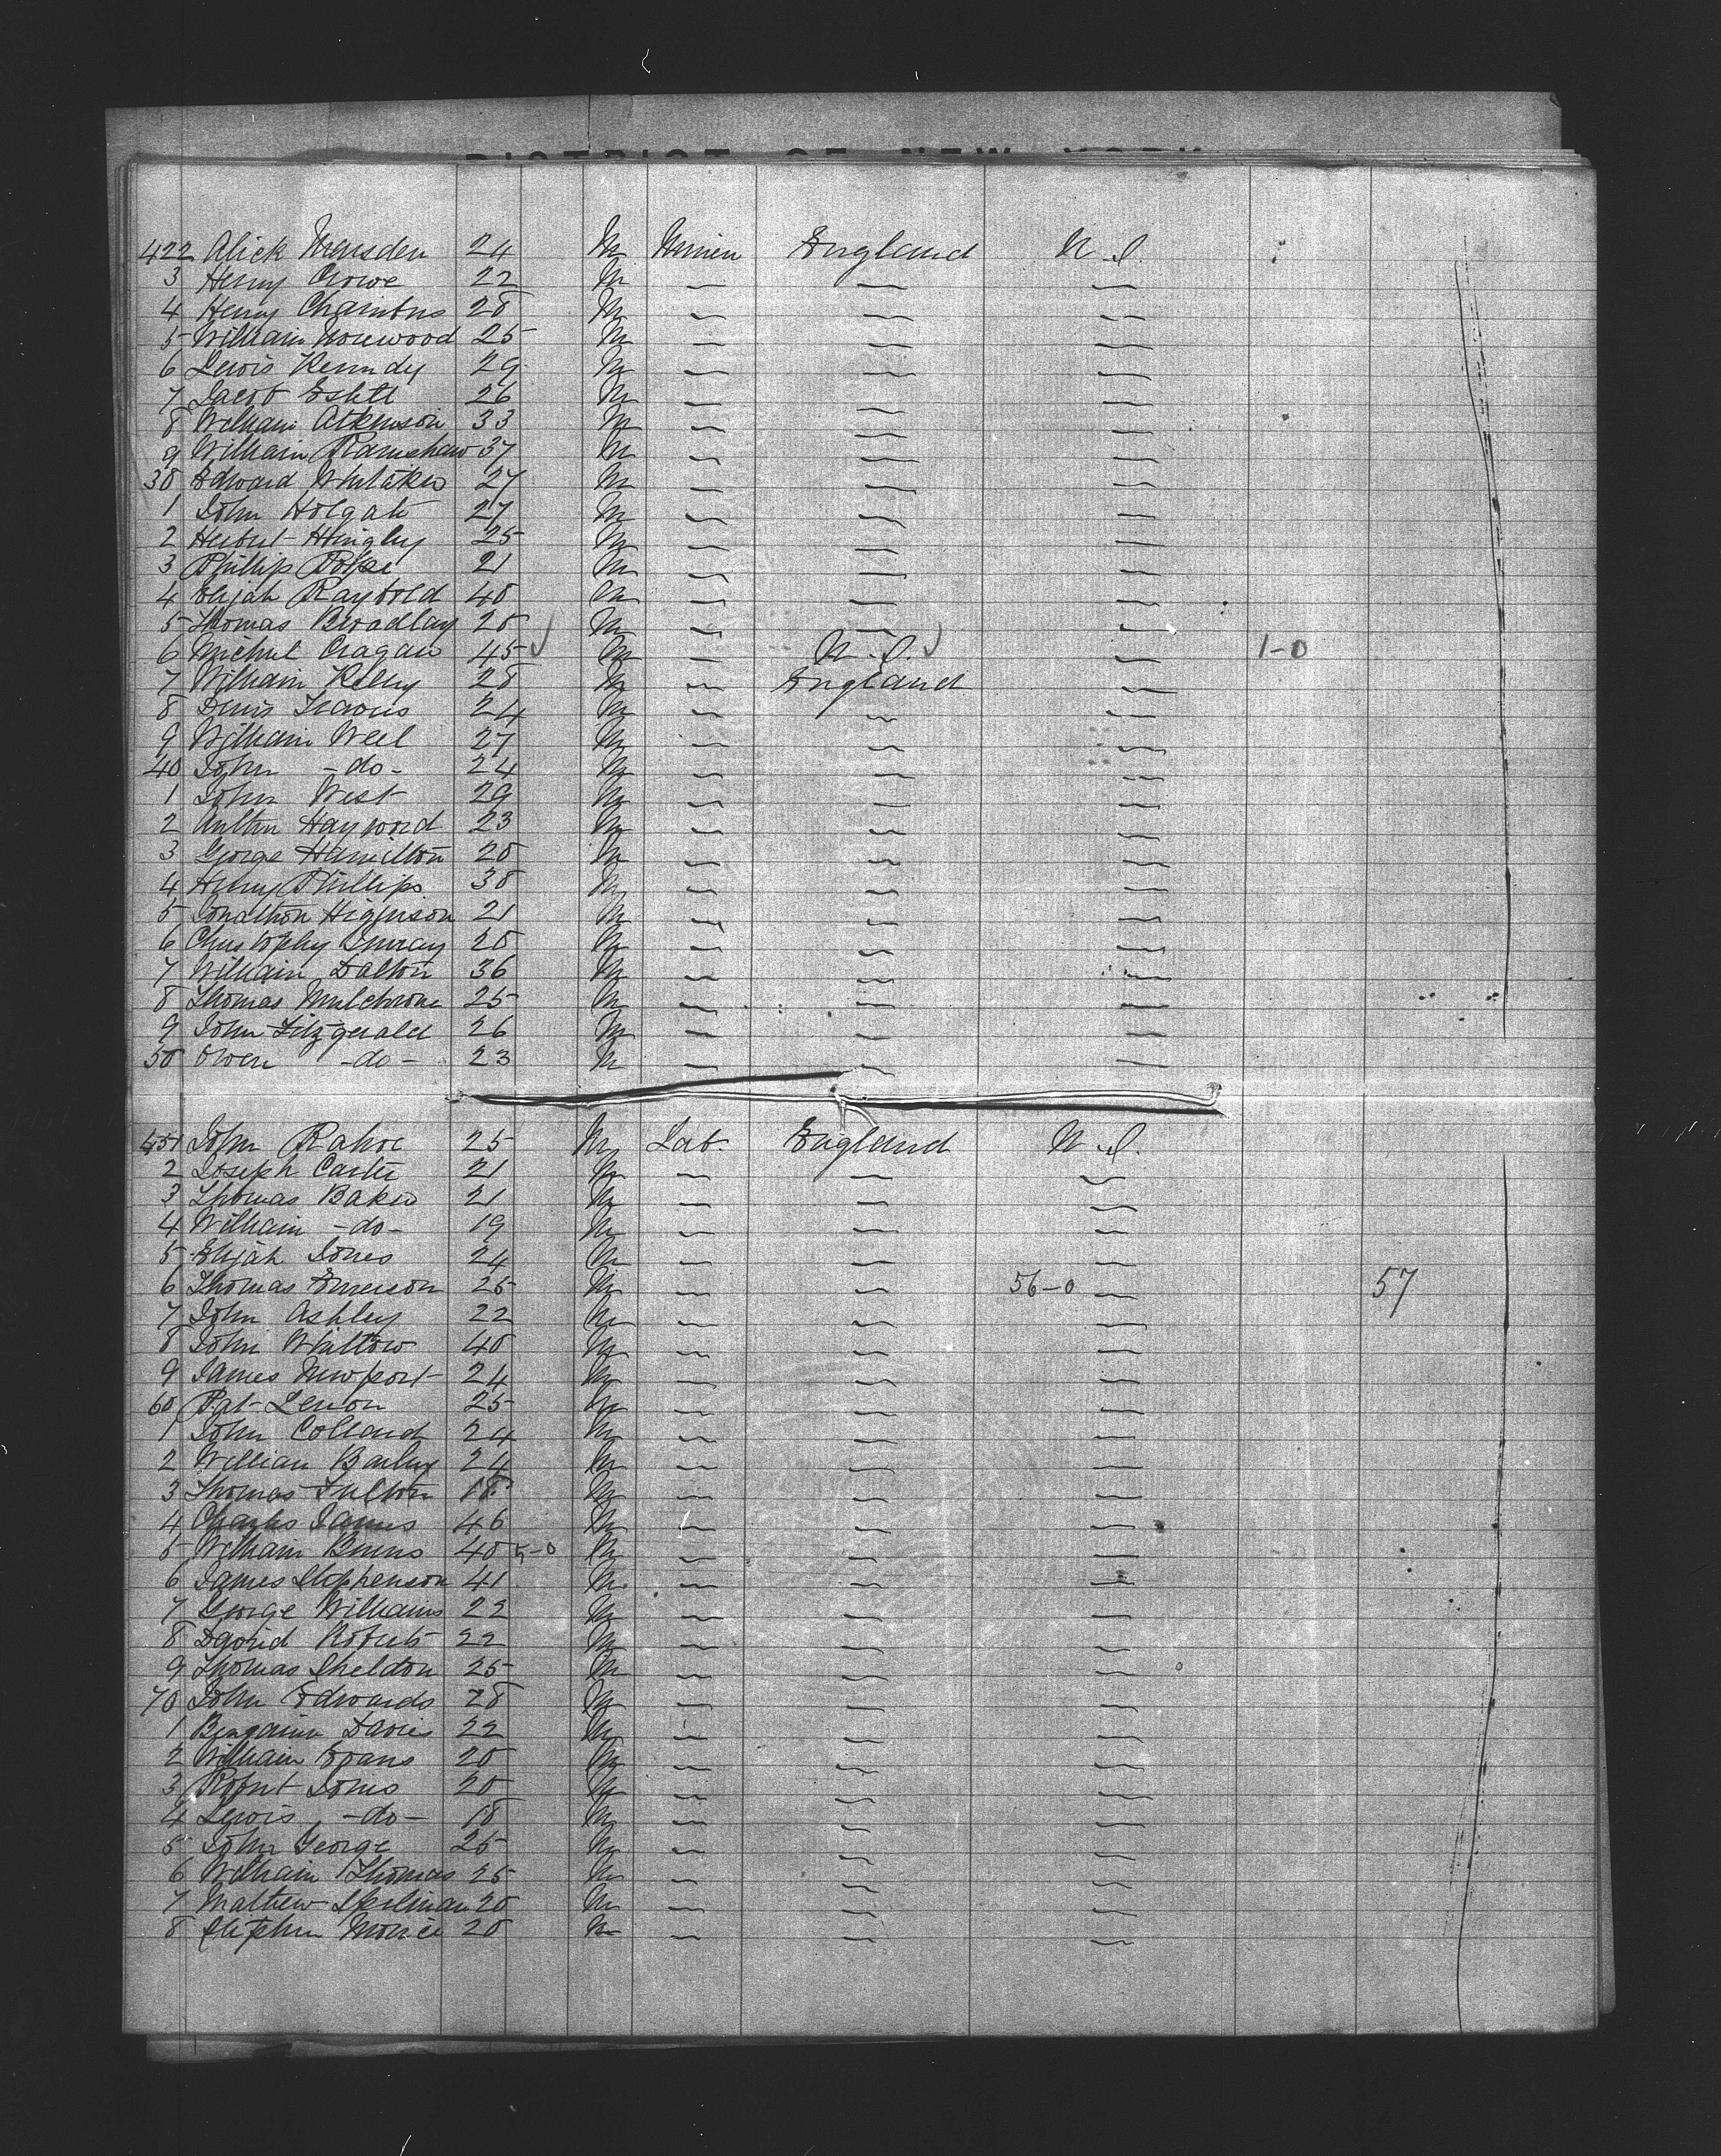 DISTRICT OF NEW YORK
422 Alick 24 M England U.S.
3 Henry Crowe 22 M — — —
4 Henry 28 M — — —
5 William Norwood 25 M — — —
6 Lewis 29 M — — —
7 Jacob 26 M — — —
8 William Atkinson 33 M — — —
9 William Ramshaw 37 M — — —
30 Edward Whitaker 27 M — — —
1 John Holgate 27 M — — —
2 Hingley 25 M — — —
3 Phillip 21 M — — —
4 Elijah Raybold 40 M — — —
5 Thomas Bradley M — — —
6 Cragan 45 M — U.S. — 1-0
7 William 28 M — England —
8 24 M — — —
9 William 27 M — — —
40 John -do- 24 M — — —
1 John West 29 M — — —
2 Hayword 23 M — — —
3 George Hamilton 20 M — — —
4 Henry Phillips M — — —
5 Higginson 21 M — — —
6 20 M — — —
7 William Dalton 36 M — — —
8 Thomas 25 M — — —
9 John Fitzgerald 26 M — — —
50 Owen -do- 23 M — — —
451 John 25 M Lab. England U.S.
2 Joseph Carter 21 M — — —
3 Thomas Baker 21 M — — —
4 William -do- 19 M — — —
5 Elijah Jones 24 M — — —
6 Thomas Emerson 25 M — — 56-0 — 57
7 John Ashley 22 M — — —
8 John 40 M — — —
9 James Newport 24 M — — —
60 Pat Lenon 25 M — — —
1 John 24 M — — —
2 William 24 M — — —
3 Thomas Fulton 18 M — — —
4 Charles James 46 M — — —
5 William Burns 40 5-0 M — — —
6 James Stephenson 41 M — — —
7 George Williams 22 M — — —
8 David Roberts 22 M — — —
9 Thomas Sheldon 25 M — — —
70 John Edwards 28 M — — —
1 Davies 22 M — — —
2 William Evans 20 M — — —
3 Robert Jones 20 M — — —
4 Lewis -do- 18 M — — —
5 John George 25 M — — —
6 William Thomas 25 M — — —
7 Mathew 20 M — — —
8 Stephen 20 M — — —